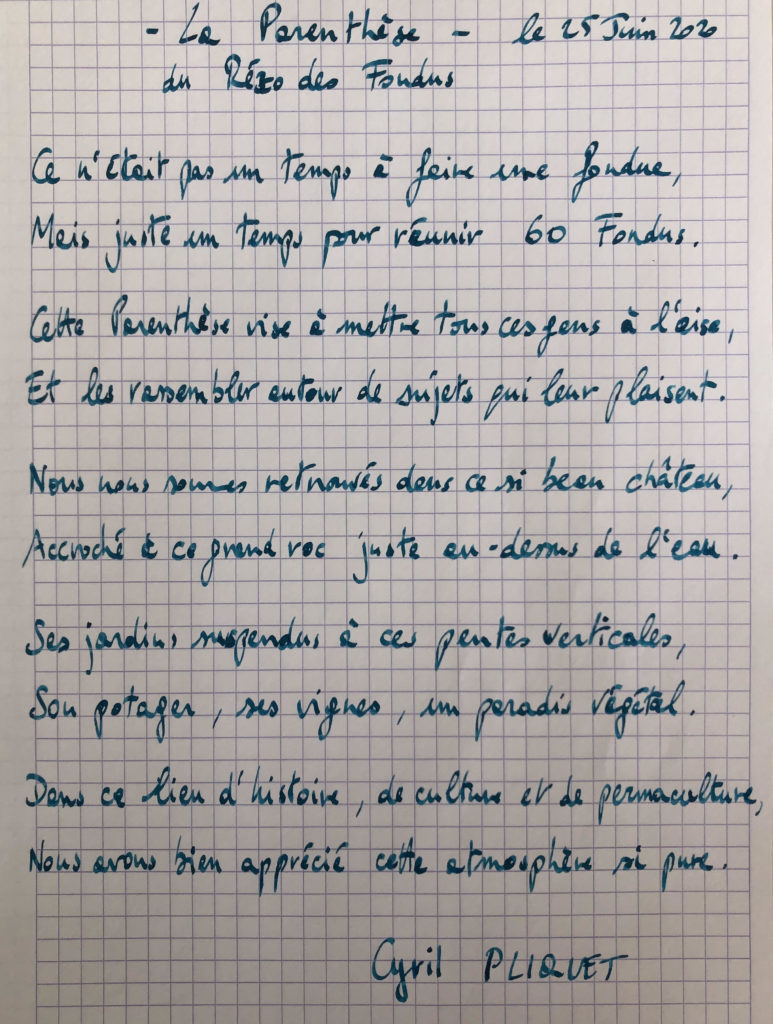 - La Parenthèse - le 25 Juin 2020
du Rézo des Fondus
Ce n'était pas un temps à faire une fondue,
Mais juste un temps pour réunir 60 Fondus.
Cette Parenthèse vise à mettre tous ces gens à l'aise,
Et les rassembler autour de sujets qui leur plaisent.
Nous nous sommes retrouvés dans ce si beau château,
Accroché à ce grand roc juste au-dessus de l'eau.
Ses jardins suspendus à ces pentes verticales,
Son potager, ses vignes, un paradis végétal.
Dans ce lieu d'histoire, de culture et de permaculture,
Nous avons bien apprécié cette atmosphère si pure.
Cyril PLIQUET